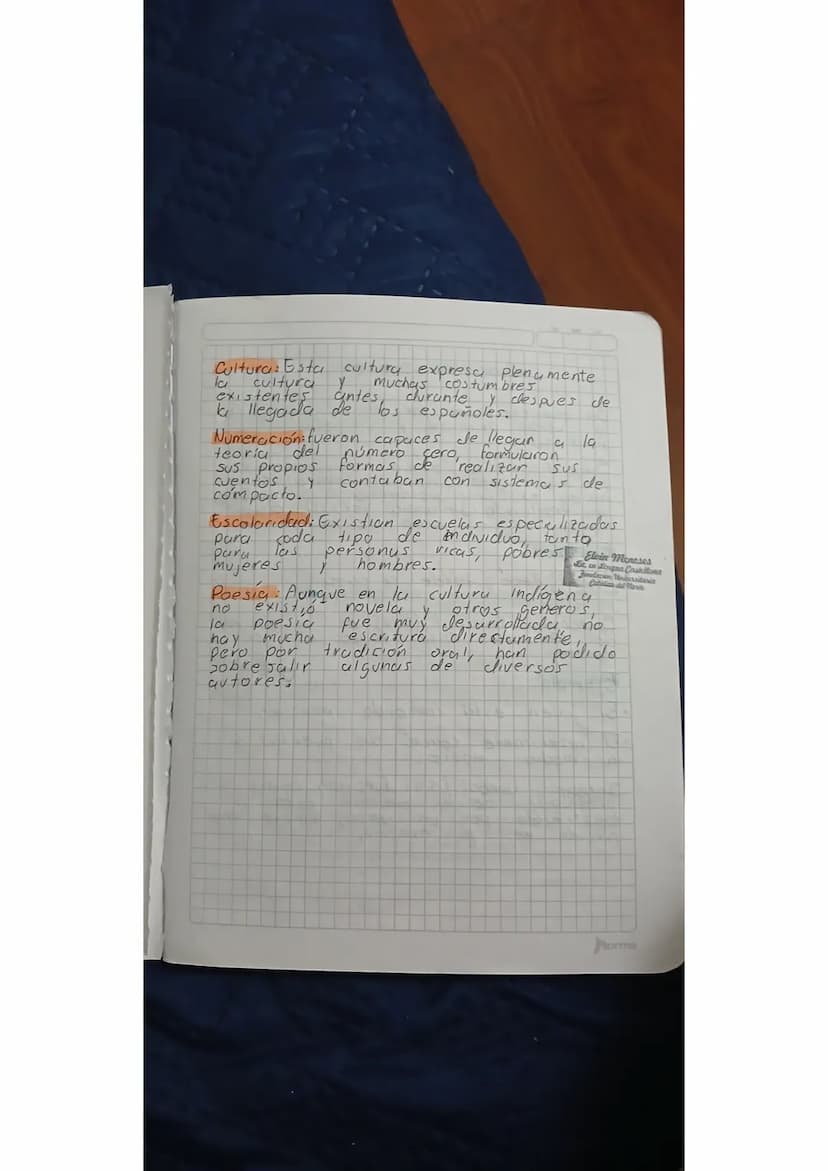 Cultura: Esta cultura expresa plenamente
la cultura y muchas costumbres
existentes antes, durante y despues de
la llegada de los españoles.
Numeración: fueron capaces de llegar a la
teoría del número cero, formularon
sus propios formas de realizar sus
cuentos y contaban con sistemas de
compacto.
Escolaridad: Existian escuelas especializadas
para cada tipo de individuo, tanto
para las personas ricas, pobres
mujeres y hombres.
Elein Meneses
Lic. en Lengua Castellana
Fundación Universitaria
Católica del Norte
Poesía: Aunque en la cultura indígena
no existió novela y otros géneros,
la poesia fue muy desarrollada, no
hay mucha escritura directamente,
pero por tradición oral, han podido
sobresalir algunas de diversos
autores.
norma